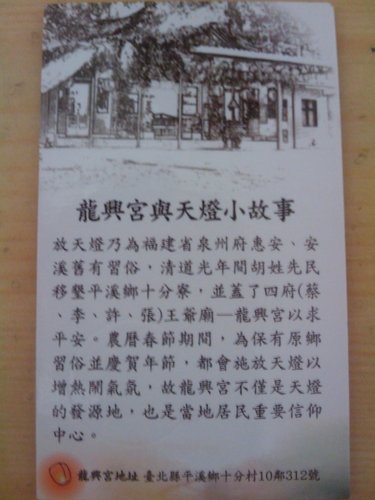 龍興宮與天燈小故事
放天燈乃為福建省泉州府惠安、安
溪舊有習俗，清道光年間胡姓先民
移墾平溪鄉十分寮，並蓋了四府(蔡
、李、許、張)王爺廟—龍興宮以求
平安。農曆春節期間，為保有原鄉
習俗並慶賀年節，都會施放天燈以
增熱鬧氣氛，故龍興宮不僅是天燈
的發源地，也是當地居民重要信仰
中心。
龍興宮地址 臺北縣平溪鄉十分村10鄰312號